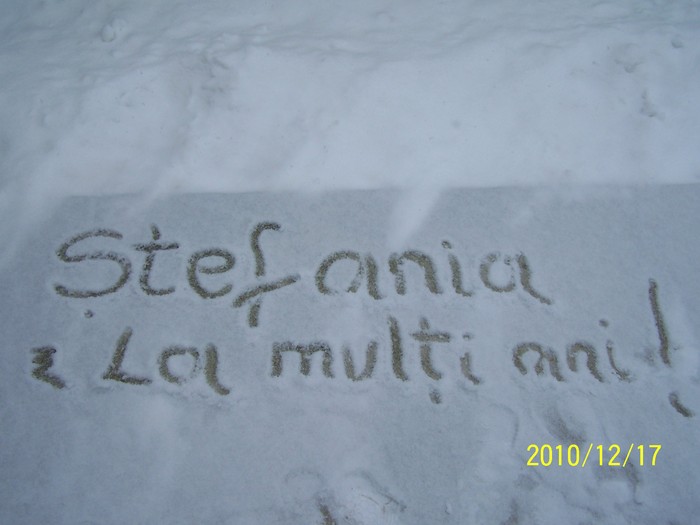 Ștefania
La mulți ani!
2010/12/17